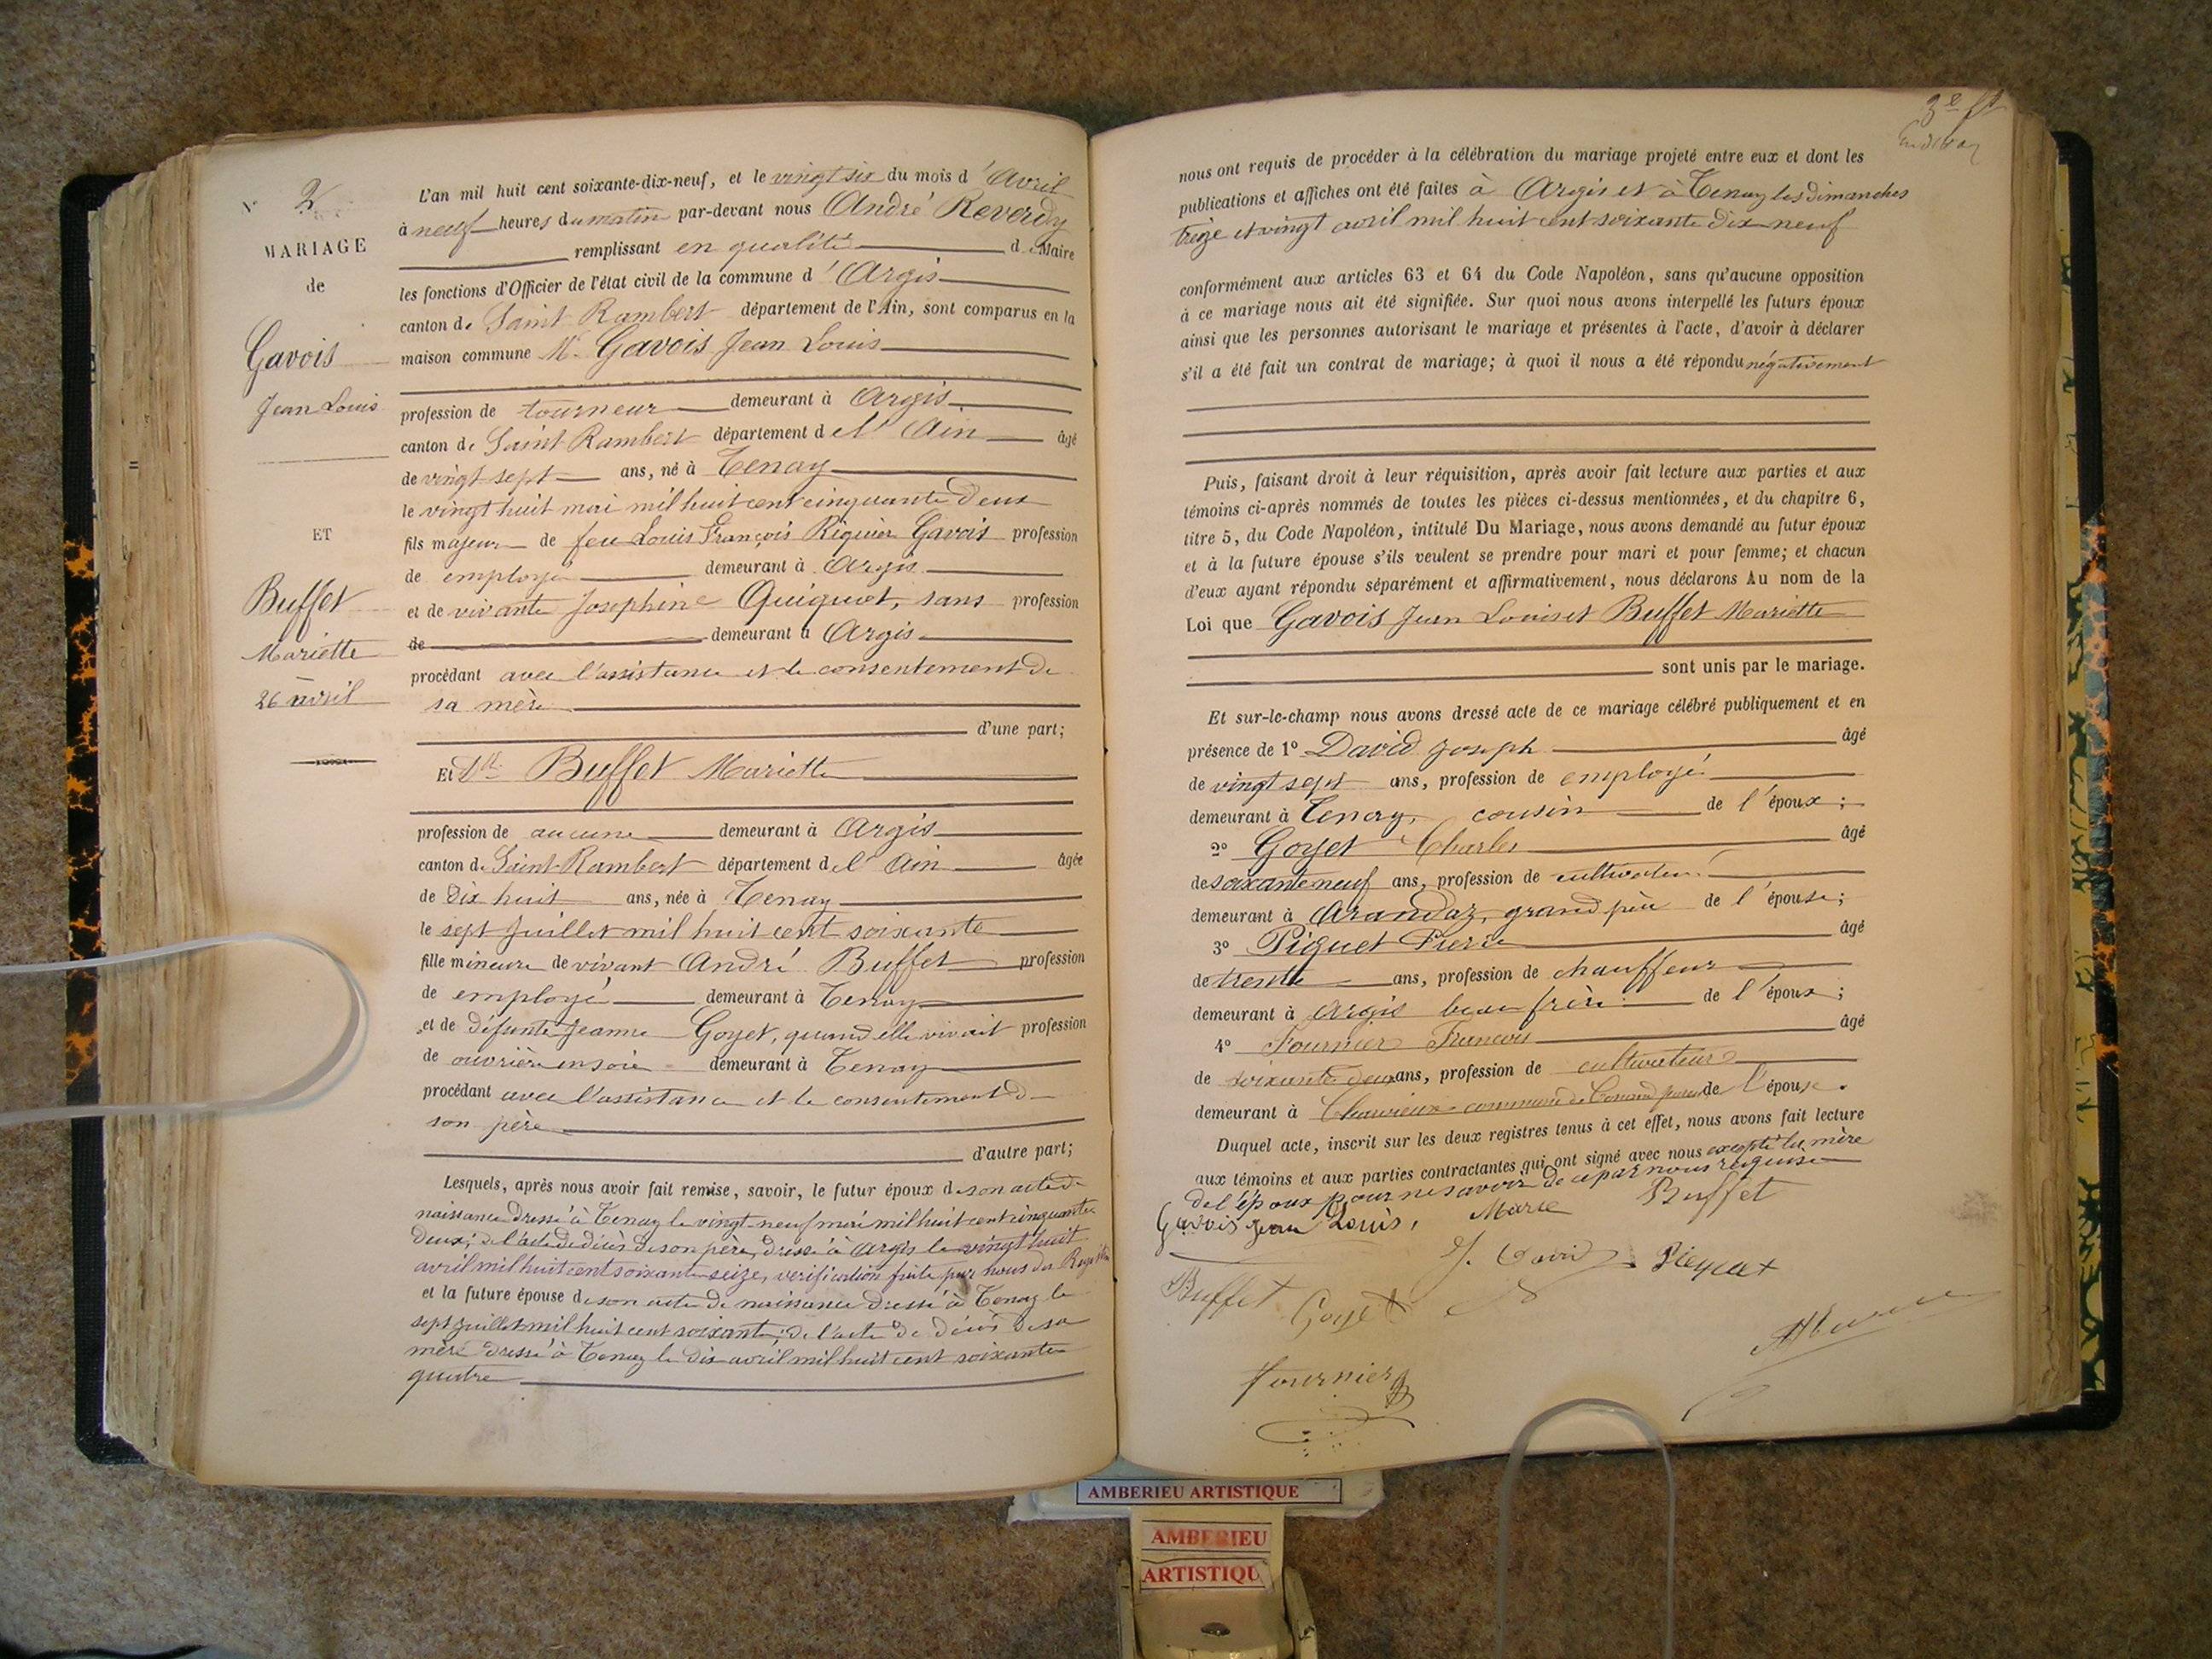 N° 2
MARIAGE
de
Gavois
Jean Louis
ET
Buffet
Mariette
26 avril
L'an mil huit cent soixante-dix-neuf, et le vingt six du mois d'Avril
à neuf heures du matin par-devant nous André Reverdy
remplissant en qualité de Maire
les fonctions d'Officier de l'état civil de la commune d'Argis
canton de Saint Rambert département de l'Ain, sont comparus en la
maison commune Mr Gavois Jean Louis
profession de tourneur demeurant à Argis
canton de Saint Rambert département de l'Ain âgé
de vingt sept ans, né à Tenay
le vingt huit mai mil huit cent cinquante deux
fils majeur de feu Louis François Riquier Gavois profession
de employé demeurant à Argis
et de vivante Josephine Quiquet, sans profession
de demeurant à Argis
procédant avec l'assistance et le consentement de
sa mère
d'une part;
Et Dlle Buffet Mariette
profession de aucune demeurant à Argis
canton de Saint-Rambert département de l'Ain âgée
de dix huit ans, née à Tenay
le sept Juillet mil huit cent soixante
fille mineure de vivant André Buffet profession
de employé demeurant à Tenay
et de défunte Jeanne Goyet, quand elle vivait profession
de ouvrière en soie demeurant à Tenay
procédant avec l'assistance et le consentement de
son père
d'autre part;
Lesquels, après nous avoir fait remise, savoir, le futur époux de son acte de
naissance dressé à Tenay le vingt-neuf mai mil huit cent cinquante
deux; de l'acte de décès de son père, dressé à Argis le vingt huit
avril mil huit cent soixante seize, verification faite par nous des Registres
et la future épouse de son acte de naissance dressé à Tenay le
sept juillet mil huit cent soixante; de l'acte de décès de sa
mère dressé à Tenay le dix avril mil huit cent soixante
quatre
3e ft
nous ont requis de procéder à la célébration du mariage projeté entre eux et dont les
publications et affiches ont été faites à Argis et à Tenay les dimanches
treize et vingt avril mil huit cent soixante dix neuf
conformément aux articles 63 et 64 du Code Napoléon, sans qu'aucune opposition
à ce mariage nous ait été signifiée. Sur quoi nous avons interpellé les futurs époux
ainsi que les personnes autorisant le mariage et présentes à l'acte, d'avoir à déclarer
s'il a été fait un contrat de mariage; à quoi il nous a été répondu négativement
Puis, faisant droit à leur réquisition, après avoir fait lecture aux parties et aux
témoins ci-après nommés de toutes les pièces ci-dessus mentionnées, et du chapitre 6,
titre 5, du Code Napoléon, intitulé Du Mariage, nous avons demandé au futur époux
et à la future épouse s'ils veulent se prendre pour mari et pour femme; et chacun
d'eux ayant répondu séparément et affirmativement, nous déclarons Au nom de la
Loi que Gavois Jean Louis et Buffet Mariette
sont unis par le mariage.
Et sur-le-champ nous avons dressé acte de ce mariage célébré publiquement et en
présence de 1° David Joseph âgé
de vingt sept ans, profession de employé
demeurant à Tenay, cousin de l'époux;
2° Goyet Charles âgé
de soixante neuf ans, profession de cultivateur
demeurant à Arandaz, grand père de l'épouse;
3° Piquet Pierre âgé
de trente ans, profession de chauffeur
demeurant à Argis beau frère de l'époux;
4° Fournier François âgé
de soixante deux ans, profession de cultivateur
demeurant à commune de de l'épouse.
Duquel acte, inscrit sur les deux registres tenus à cet effet, nous avons fait lecture
aux témoins et aux parties contractantes qui ont signé avec nous excepté la mère
de l'époux pour ne savoir de ce par nous requise
Gavois Jean Louis, Marie Buffet
J. David Piquet
Buffet Goyet
Fournier
AMBERIEU ARTISTIQUE
AMBERIEU
ARTISTIQU